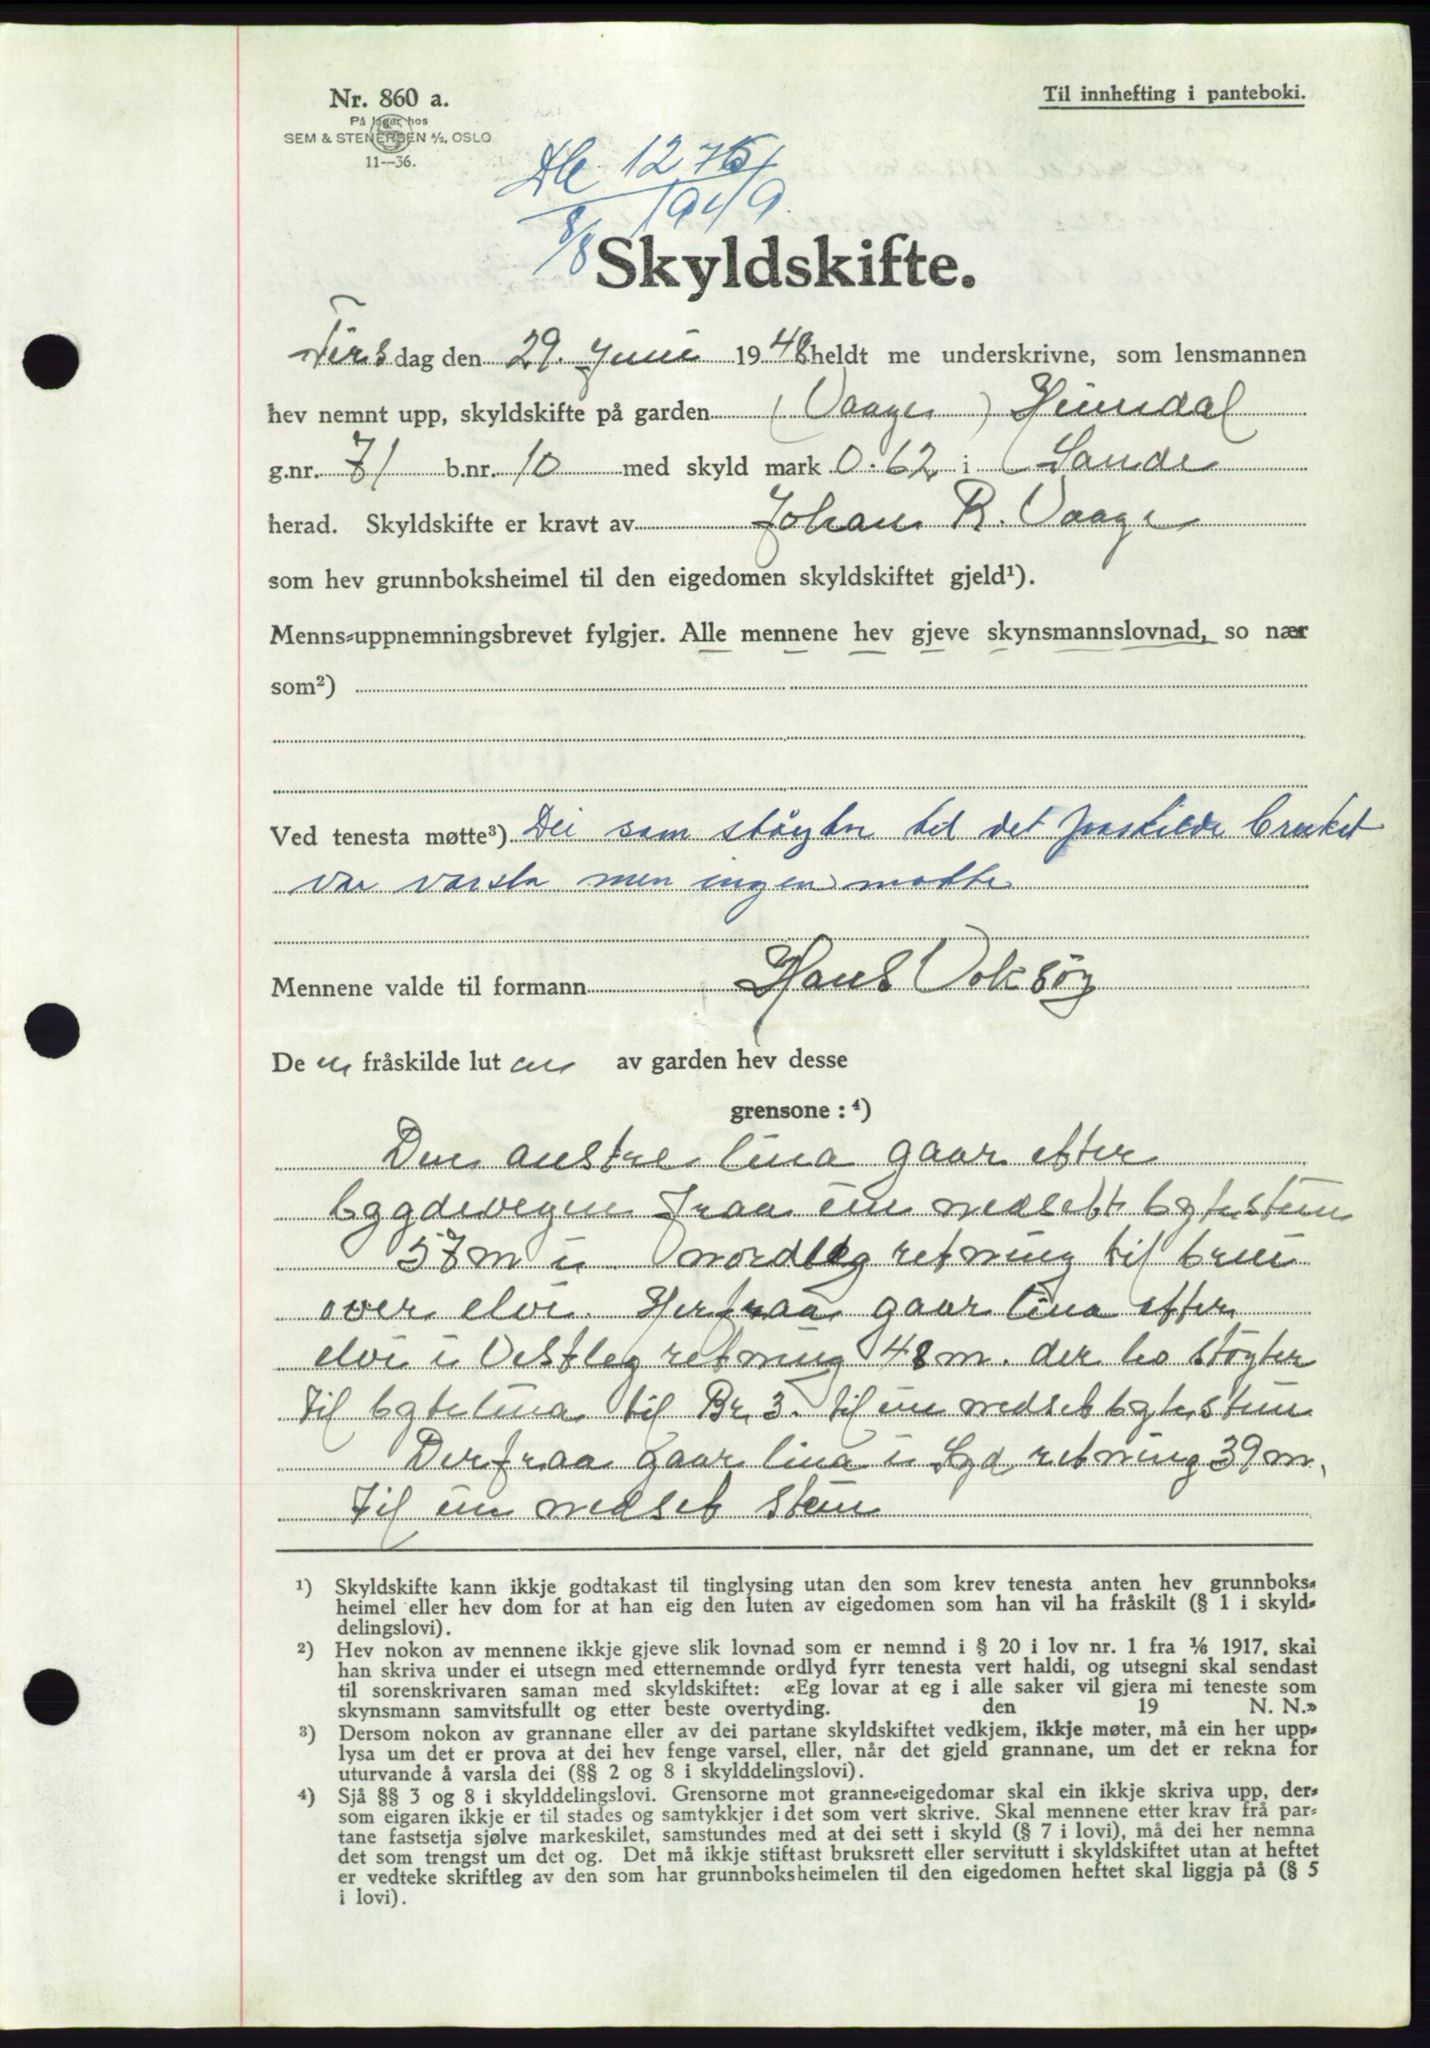 Nr. 860 a.
På lager hos
SEM & STENERSEN A/S, OSLO
11--36.
Til innhefting i panteboki.
1275/1949
8/8
Skyldskifte.
Tirsdag den 29. Juni 1948 heldt me underskrivne, som lensmannen
hev nemnt upp, skyldskifte på garden (Vaage) Heimdal
g.nr. 71 b.nr. 10 med skyld mark 0.62 i Sande
herad. Skyldskifte er kravt av Johan R. Vaage
som hev grunnboksheimel til den eigedomen skyldskiftet gjeld¹).
Menns-uppnemningsbrevet fylgjer. Alle mennene hev gjeve skynsmannslovnad, so nær
som²)
Ved tenesta møtte³) Dei som støyter til det fraskilde bruket
var varsla men ingen møtte
Mennene valde til formann Hans Voksøy
De n fråskilde lut en av garden hev desse
grensone: ⁴)
Den austre lina gaar efter
bygdevegen fraa ein nedsett bytestein
57 m i nordleg retning til brui
over elvi. Herfraa gaar lina efter
elvi i Vestleg retning 48 m. der ho støyter
til bytelina til Br. 3. til ein nedset bytestein
Derfraa gaar lina i Syd retning 39 m.
til ein nedset stein
¹) Skyldskifte kann ikkje godtakast til tinglysing utan den som krev tenesta anten hev grunnboks-
heimel eller hev dom for at han eig den luten av eigedomen som han vil ha fråskilt (§ 1 i skyld-
delingslovi).
²) Hev nokon av mennene ikkje gjeve slik lovnad som er nemnd i § 20 i lov nr. 1 fra 1/6 1917, skal
han skriva under ei utsegn med etternemnde ordlyd fyrr tenesta vert haldi, og utsegni skal sendast
til sorenskrivaren saman med skyldskiftet: «Eg lovar at eg i alle saker vil gjera mi teneste som
skynsmann samvitsfullt og etter beste overtyding. den 19 N. N.»
³) Dersom nokon av grannane eller av dei partane skyldskiftet vedkjem, ikkje møter, må ein her upp-
lysa um det er prova at dei hev fenge varsel, eller, når det gjeld grannane, um det er rekna for
uturvande å varsla dei (§§ 2 og 8 i skylddelingslovi).
⁴) Sjå §§ 3 og 8 i skylddelingslovi. Grensorne mot granne-eigedomar skal ein ikkje skriva upp, der-
som eigaren ikkje er til stades og samtykkjer i det som vert skrive. Skal mennene etter krav frå par-
tane fastsetja sjølve markeskilet, samstundes med at dei sett i skyld (§ 7 i lovi), må dei her nemna
det som trengst um det og. Det må ikkje stiftast bruksrett eller servitutt i skyldskiftet utan at heftet
er vedteke skriftleg av den som har grunnboksheimelen til den eigedomen heftet skal liggja på (§ 5
i lovi).